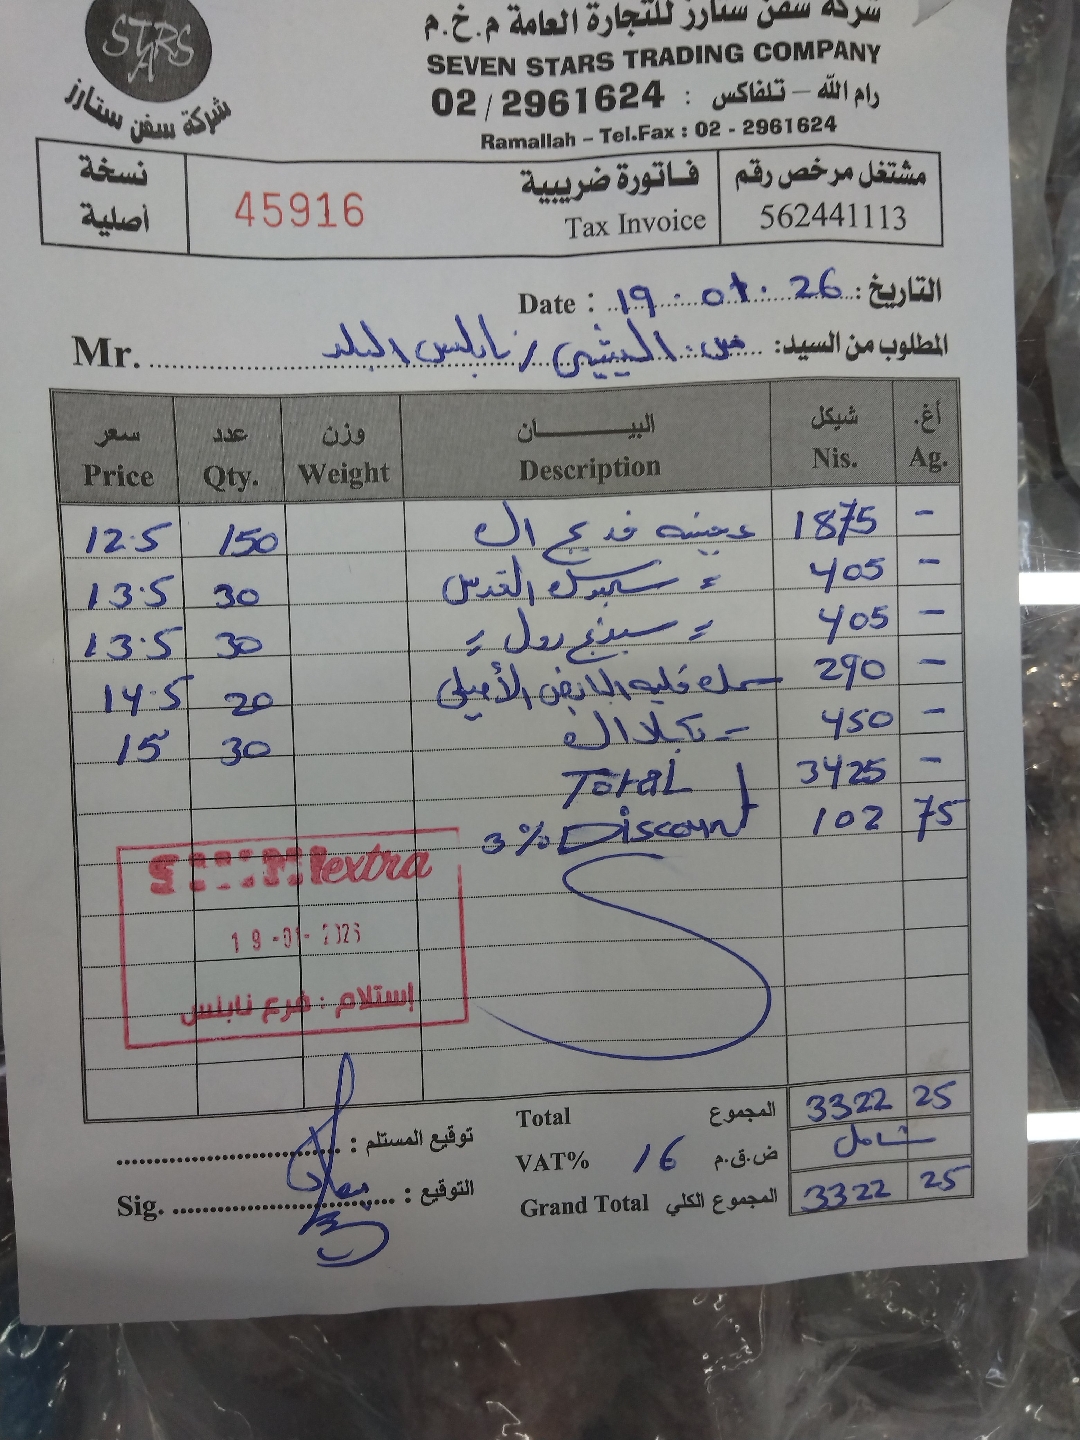 STARS
شركة سفن ستارز
شركة سفن ستارز للتجارة العامة م.خ.م
SEVEN STARS TRADING COMPANY
رام الله – تلفاكس : 02 / 2961624
Ramallah – Tel.Fax : 02 - 2961624
مشتغل مرخص رقم
562441113
فاتورة ضريبية
Tax Invoice
45916
نسخة
أصلية
التاريخ: 26.01.19 Date :
المطلوب من السيد: / نابلس البلد Mr.
أغ. شيكل البيــــان وزن عدد سعر
Ag. Nis. Description Weight Qty. Price
- 1875 عجينه 150 12.5
- 405 القدس 30 13.5
- 405 رول 30 13.5
- 290 سمك فليه 20 14.5
- 450 30 15
- 3425 Total
75 102 3% Discount
extra
19-01-2026
إستلام : فرع نابلس
Total المجموع 3322 25
VAT% 16 ض.ق.م شامل
Grand Total المجموع الكلي 3322 25
توقيع المستلم :
التوقيع : Sig.